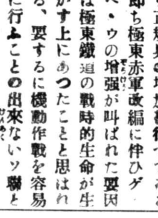 即ち極東赤軍改編に伴ひゲ・
ペ・ウの增强が叫ばれた要因
は極東鐵道の戰時的生命が生
かす上にあつたことと思はれ
る、要するに機動作戰を容易
に行ふことの出來ないソ聯と